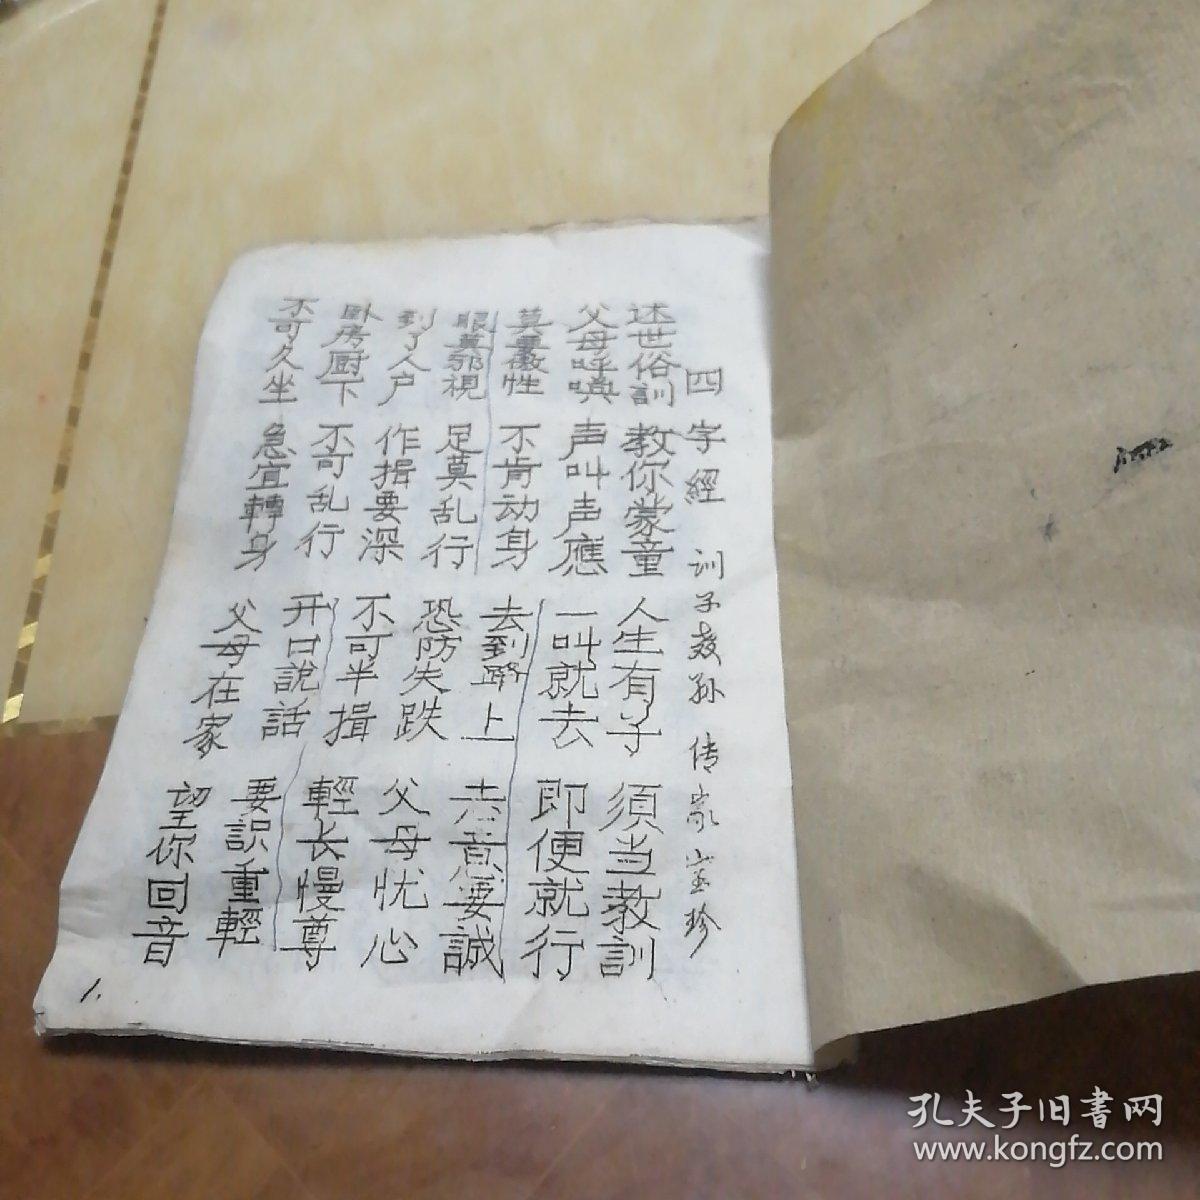 四字經 训子教孙 传家宝珍
述世俗訓 教你蒙童 人生有子 须当教訓
父母呼喚 声叫声應 一叫就去 即便就行
莫重傲性 不肯动身 去到路上 意要誠
眼莫邪視 足莫乱行 恐防失跌 父母忧心
到了人户 作揖要深 不可半揖 輕长慢尊
卧房厨下 不可乱行 开口説話 要識重輕
不可久坐 急宜轉身 父母在家 望你回音
1.
孔夫子旧書网
www.kongfz.com